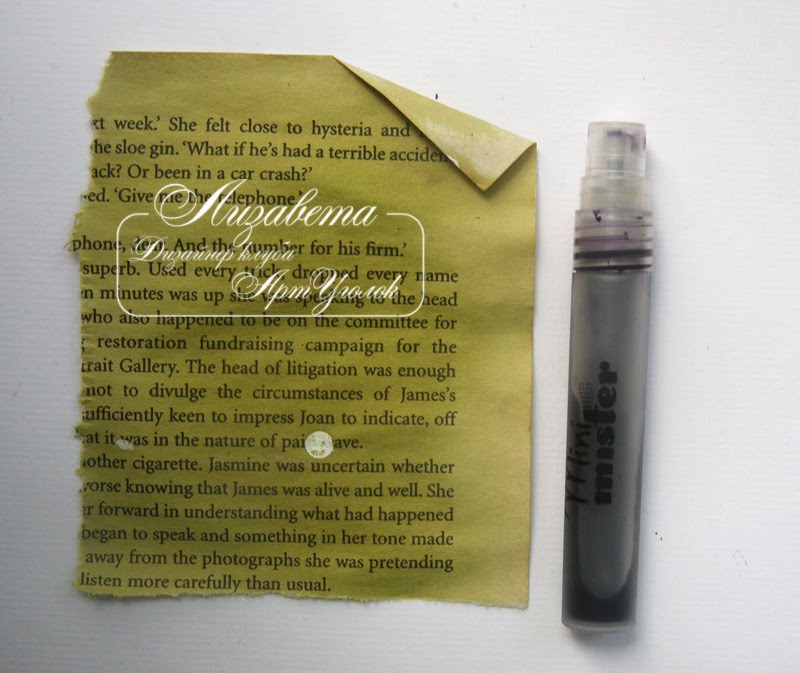 xt week.' She felt close to hysteria and
he sloe gin. 'What if he's had a terrible acciden
ack? Or been in a car crash?'
ed. 'Give me the telephone.'
phone, dear. And the number for his firm.'
superb. Used every trick, dropped every name
n minutes was up she was speaking to the head
who also happened to be on the committee for
restoration fundraising campaign for the
rait Gallery. The head of litigation was enough
not to divulge the circumstances of James's
sufficiently keen to impress Joan to indicate, off
at it was in the nature of pai ave.
other cigarette. Jasmine was uncertain whether
worse knowing that James was alive and well. She
er forward in understanding what had happened
began to speak and something in her tone made
away from the photographs she was pretending
listen more carefully than usual.
Лизавета
Дизайнер клуба
АртУголок
Mini
mister